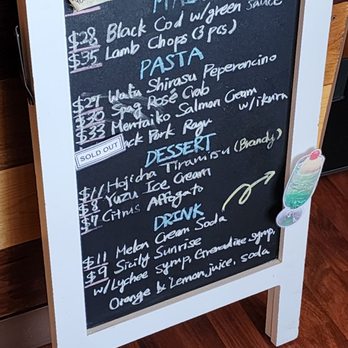 MAIN
$28 Black Cod w/green sauce
$35 Lamb Chops (3 pcs)
PASTA
$27 Wafu Shirasu Peperoncino
$30 Spag Rosé Crab
$33 Mentaiko Salmon Cream
w/ikura
SOLD OUT Pork Ragu
DESSERT
$11 Hojicha Tiramisu (Brandy)
$8 Yuzu Ice Cream
$7 Citrus Affogato
DRINK
$11 Melon Cream Soda
$9 Sicily Sunrise
w/Lychee syrup, Grenadine syrup,
Orange & Lemon juice, soda